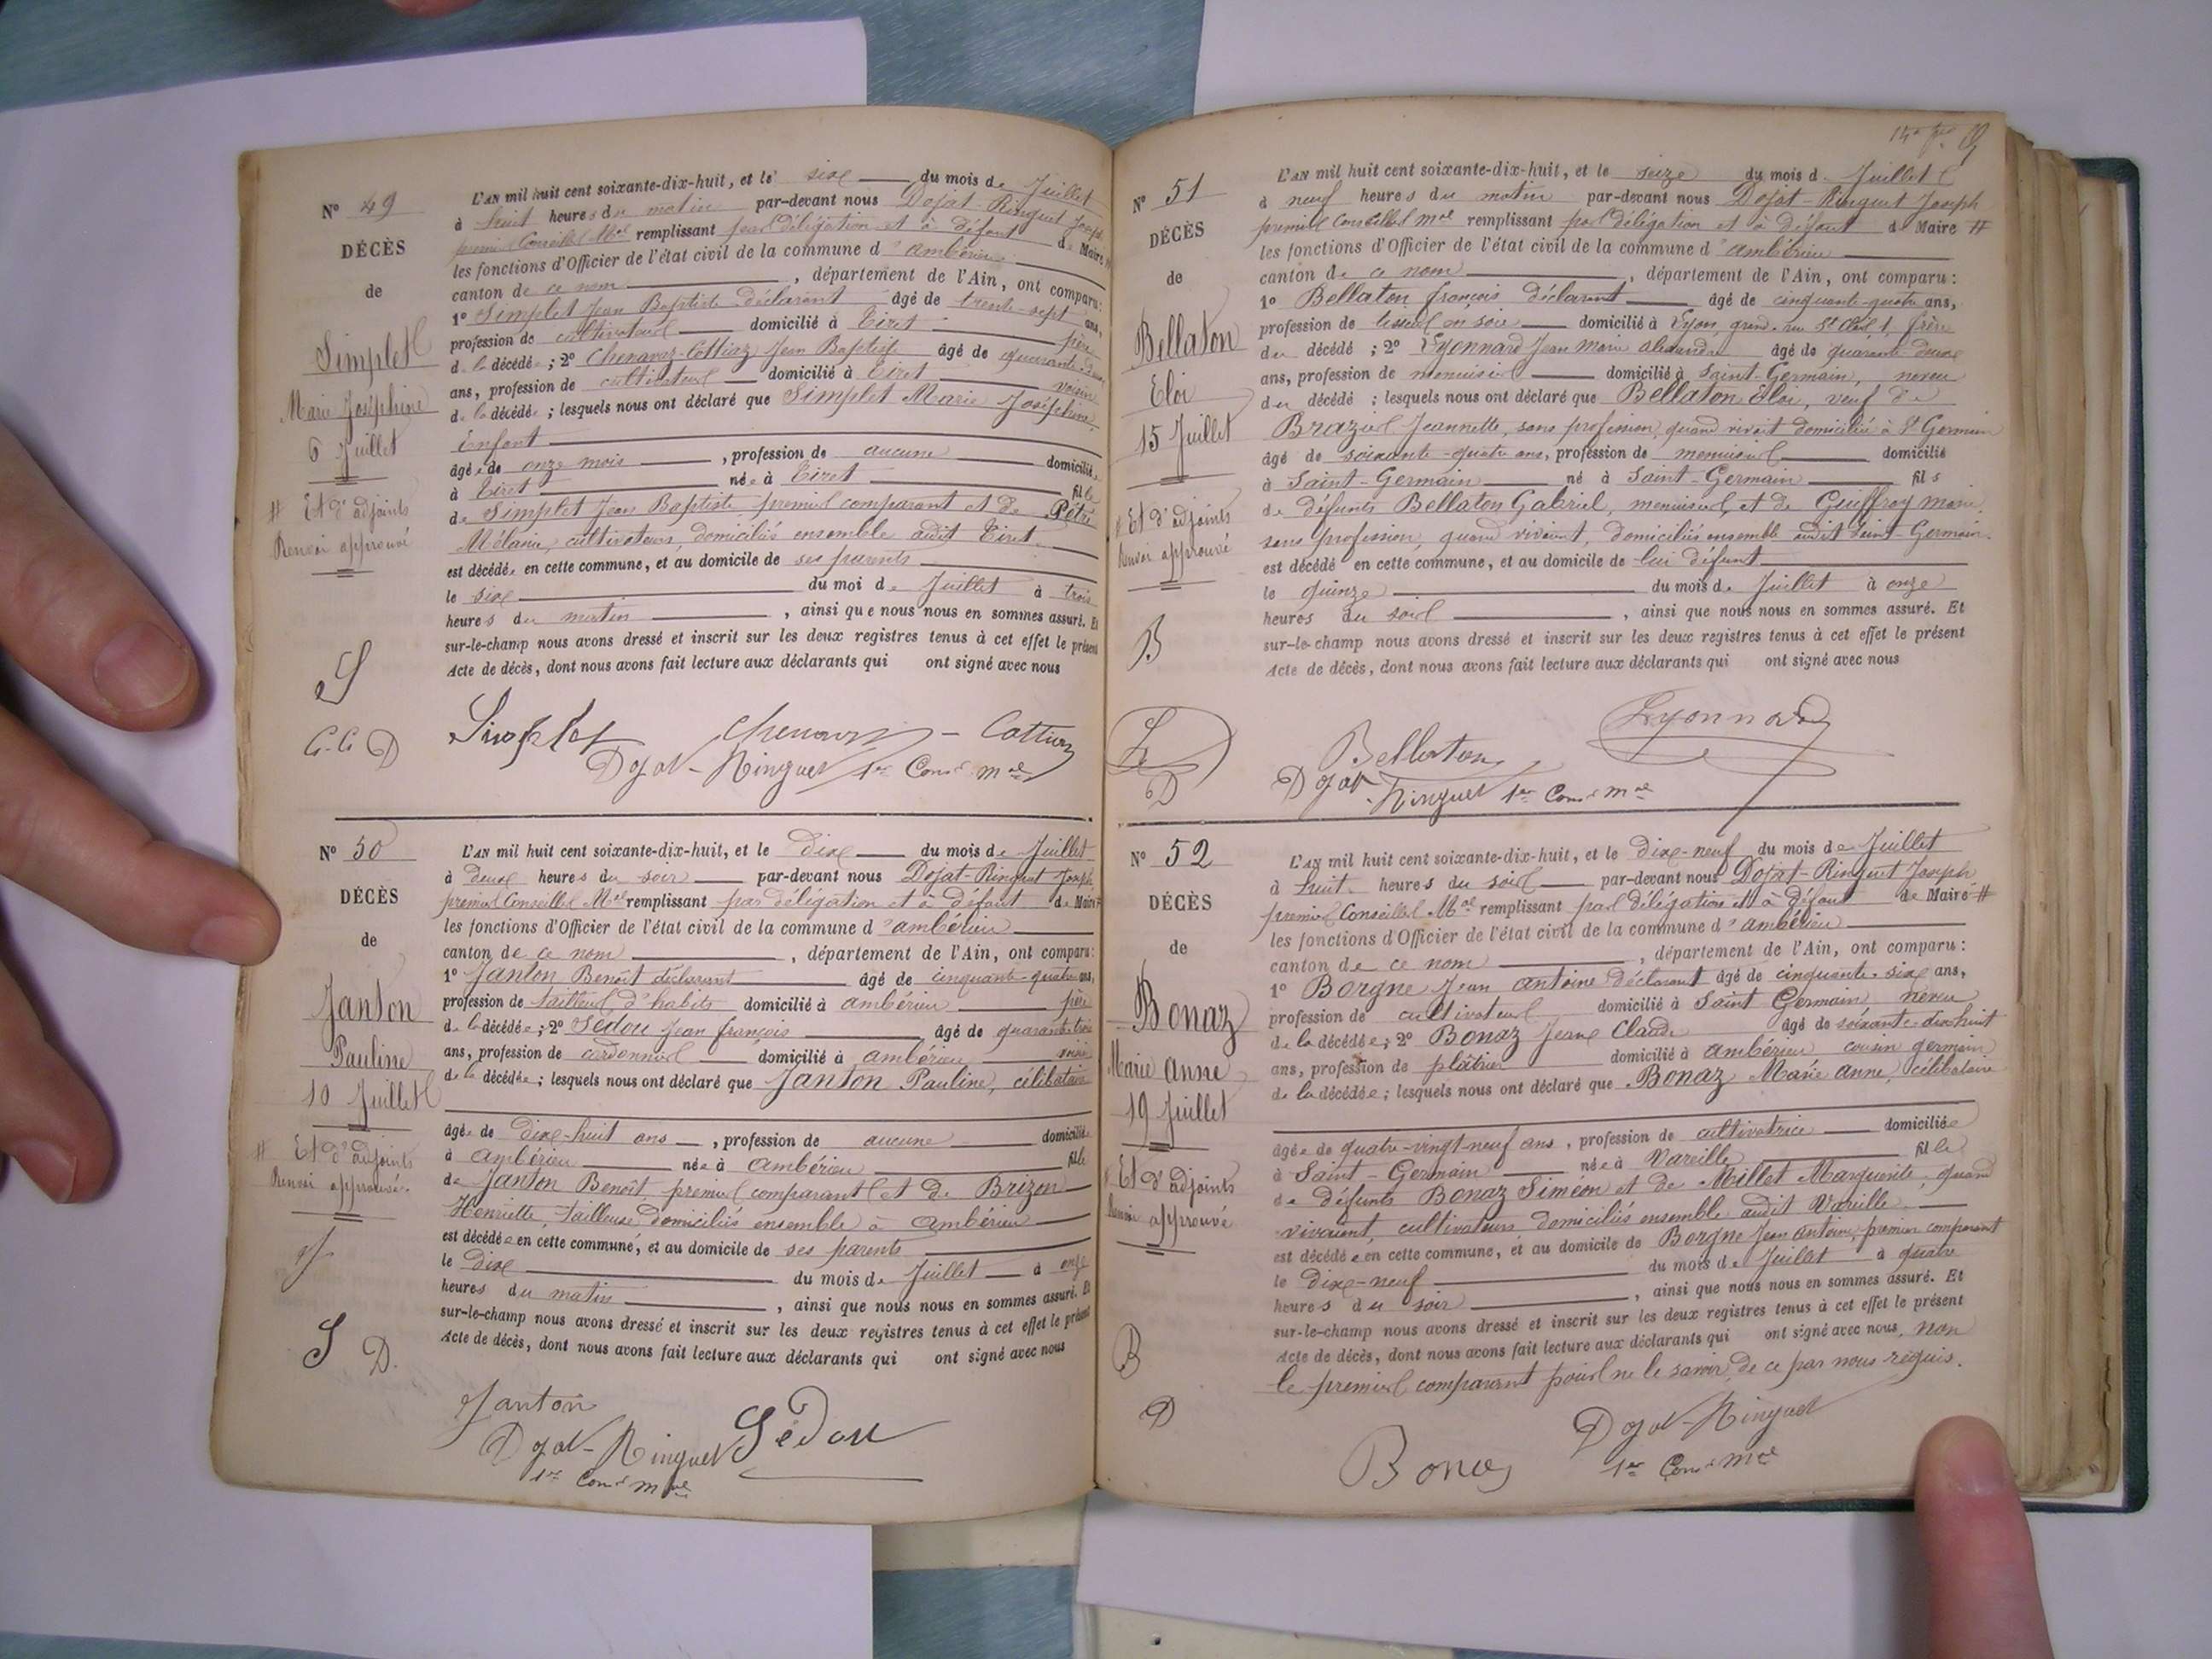 N° 49
DÉCÈS
de
Simplet
Marie Joséphine
6 Juillet
# Et d'adjoints
Renvoi approuvé
L'AN mil huit cent soixante-dix-huit, et le six du mois de Juillet
à huit heures du matin par-devant nous Dojat-Ringuet Joseph
premier Conseiller Mal remplissant par délégation et à défaut de Maire #
les fonctions d'Officier de l'état civil de la commune d'ambérieu
canton de ce nom, département de l'Ain, ont comparu:
1° Simplet Jean Baptiste déclarant âgé de trente-sept ans,
profession de cultivateur domicilié à Tiret père
de la décédée; 2° Chenavaz-Cottiaz Jean Baptiste âgé de quarante-deux
ans, profession de cultivateur domicilié à Tiret voisin
de la décédée; lesquels nous ont déclaré que Simplet Marie Joséphine,
enfant
âgée de onze mois, profession de aucune domiciliée
à Tiret née à Tiret fille
de Simplet Jean Baptiste premier comparant et de Pétre
Mélanie, cultivateurs, domiciliés ensemble audit Tiret
est décédée en cette commune, et au domicile de ses parents
le six du moi de Juillet à trois
heures du matin, ainsi que nous nous en sommes assuré. Et
sur-le-champ nous avons dressé et inscrit sur les deux registres tenus à cet effet le présent
Acte de décès, dont nous avons fait lecture aux déclarants qui ont signé avec nous
S
C.C D
Simplet Chenavaz-Cottiaz
Dojat-Ringuet 1er Conser mal
N° 50
DÉCÈS
de
Janton
Pauline
10 Juillet
# Et d'adjoints
Renvoi approuvé.
L'AN mil huit cent soixante-dix-huit, et le Dix du mois de Juillet
à deux heures du soir par-devant nous Dojat-Ringuet Joseph
premier Conseiller Mal remplissant par délégation et à défaut de Maire #
les fonctions d'Officier de l'état civil de la commune d'ambérieu
canton de ce nom, département de l'Ain, ont comparu:
1° Janton Benoît déclarant âgé de cinquante-quatre ans,
profession de tailleur d'habits domicilié à ambérieu père
de la décédée; 2° Sédou Jean françois âgé de quarante-trois
ans, profession de cordonnier domicilié à ambérieu voisin
de la décédée; lesquels nous ont déclaré que Janton Pauline, célibataire
âgée de Dix-huit ans, profession de aucune domiciliée
à Ambérieu née à Ambérieu fille
de Janton Benoît, premier comparant et de Brizon
Henriette, tailleuse domiciliés ensemble à Ambérieu
est décédée en cette commune, et au domicile de ses parents
le Dix du mois de Juillet à onze
heures du matin, ainsi que nous nous en sommes assuré. Et
sur-le-champ nous avons dressé et inscrit sur les deux registres tenus à cet effet le présent
Acte de décès, dont nous avons fait lecture aux déclarants qui ont signé avec nous
J
S D.
Janton
Dojat-Ringuet Sédou
1er Conser mal
N° 51
DÉCÈS
de
Bellaton
Eloi
15 Juillet
# Et d'adjoints
Renvoi approuvé
L'AN mil huit cent soixante-dix-huit, et le seize du mois d. Juillet
à neuf heures du matin par-devant nous Dojat-Ringuet Joseph
premier Conseiller mal remplissant par délégation et à défaut de Maire #
les fonctions d'Officier de l'état civil de la commune d'ambérieu
canton de ce nom, département de l'Ain, ont comparu:
1° Bellaton françois déclarant âgé de cinquante-quatre ans,
profession de tisseur en soie domicilié à Lyon, grand. rue St 1, frère
du décédé; 2° Lyonnard Jean Marie alexandre âgé de quarante deux
ans, profession de menuisier domicilié à Saint-Germain, neveu
du décédé; lesquels nous ont déclaré que Bellaton Eloi, veuf de
Brazier Jeannette, sans profession, quand vivait domiciliée à St Germain
âgé de soixante-quatre ans, profession de menuisier domicilié
à Saint-Germain né à Saint-Germain fils
de défunts Bellaton Gabriel, menuisier, et de Guiffray marie,
sans profession, quand vivaient, domiciliés ensemble audit Saint-Germain.
est décédé en cette commune, et au domicile de lui défunt
le quinze du mois de Juillet à onze
heures du soir, ainsi que nous nous en sommes assuré. Et
sur-le-champ nous avons dressé et inscrit sur les deux registres tenus à cet effet le présent
Acte de décès, dont nous avons fait lecture aux déclarants qui ont signé avec nous
B
L
D
Bellaton Lyonnard
Dojat-Ringuet 1er Conser mal
N° 52
DÉCÈS
de
Bonaz
Marie Anne
19 Juillet
# Et d'adjoints
Renvoi approuvé
L'AN mil huit cent soixante-dix-huit, et le Dix-neuf du mois de Juillet
à huit heures du soir par-devant nous Dojat-Ringuet Joseph
premier Conseiller Mal remplissant par délégation et à défaut de Maire #
les fonctions d'Officier de l'état civil de la commune d'ambérieu
canton de ce nom, département de l'Ain, ont comparu:
1° Borgne Jean antoine déclarant âgé de cinquante-six ans,
profession de cultivateur domicilié à Saint Germain neveu
de la décédée; 2° Bonaz Jean Claude âgé de soixante-dix-huit
ans, profession de plâtrier domicilié à Ambérieu cousin germain
de la décédée; lesquels nous ont déclaré que Bonaz Marie anne, célibataire
âgée de quatre-vingt-neuf ans, profession de cultivatrice domiciliée
à Saint-Germain née à Vareille fille
de défunts Bonaz Siméon et de Millet Marguerite, quand
vivaient, cultivateurs domiciliés ensemble audit Vareille
est décédée en cette commune, et au domicile de Borgne Jean Antoine, premier comparant
le Dix-neuf du mois de Juillet à quatre
heures du soir, ainsi que nous nous en sommes assuré. Et
sur-le-champ nous avons dressé et inscrit sur les deux registres tenus à cet effet le présent
Acte de décès, dont nous avons fait lecture aux déclarants qui ont signé avec nous, non
le premier comparant pour ne le savoir, de ce par nous requis.
B
D
Bonaz Dojat-Ringuet
1er Conser mal